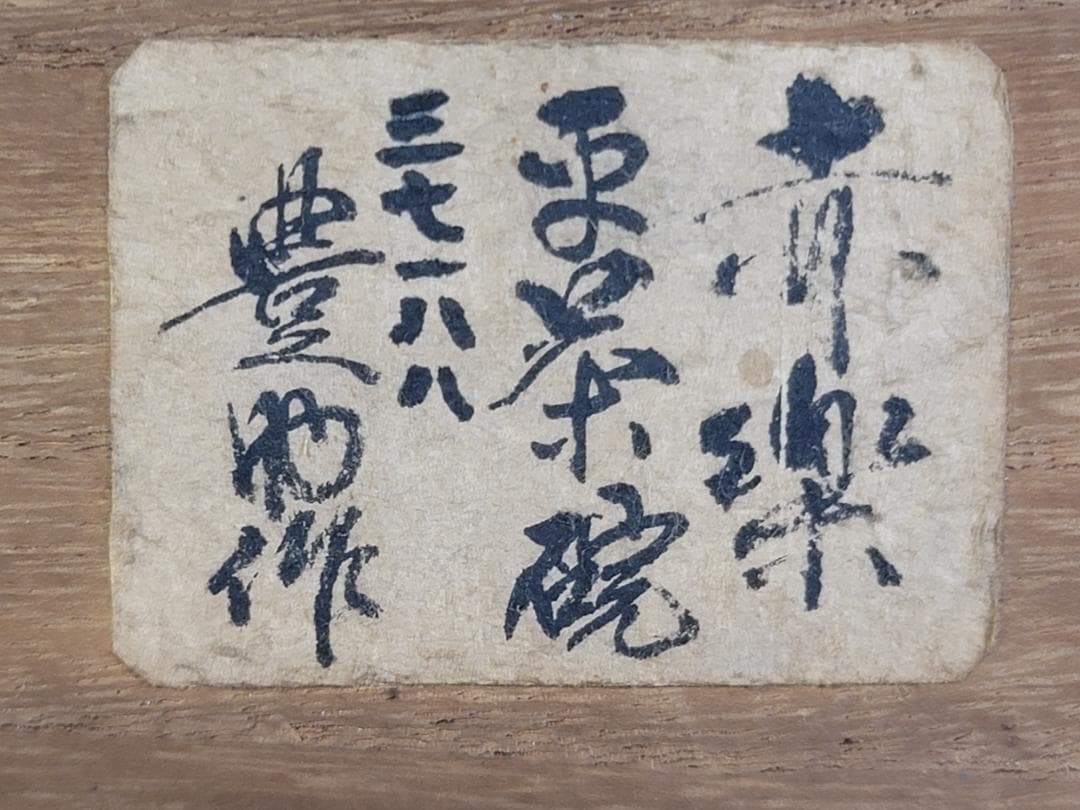 赤樂
平茶碗
三七一八八
豊助作